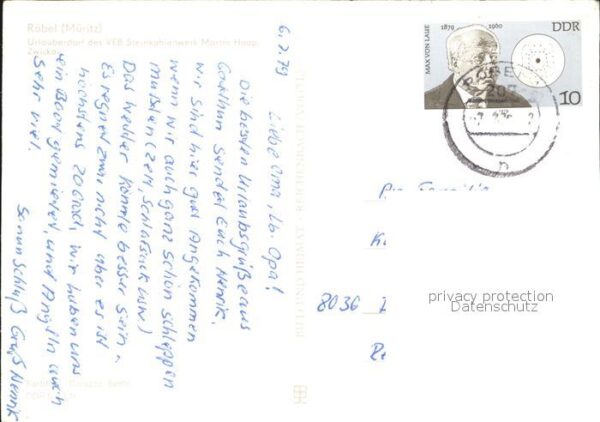 Röbel (Müritz)
Urlauberdorf des VEB Steinkohlenwerk Martin Hoop,
Zwickau
6.7.79
Liebe Oma, lb. Opa!
Die besten Urlaubsgrüße aus
sendet Euch Henrik.
wir sind hier gut Angekommen
wenn wir auch ganz schön schleppen
mußten (Zelt, Schlafsack usw)
Das wetter könnte besser sein.
Es regnet zwar nicht aber es ist
höchstens 20 Grad, wir haben uns
ein Boot gemietet, und Angeln auch
sehr viel.
So nun Schluß Gruß Henrik
BILD UND HEIMAT REICHENBACH
MAX VON LAUE
1879 1960
DDR
10
RÖBEL
An Familie
8036
privacy protection
Datenschutz